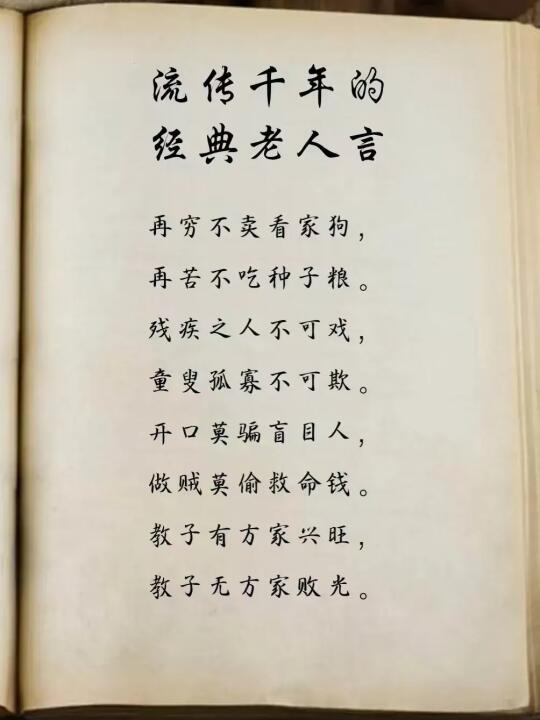 流传千年的
经典老人言
再穷不卖看家狗，
再苦不吃种子粮。
残疾之人不可戏，
童叟孤寡不可欺。
开口莫骗盲目人，
做贼莫偷救命钱。
教子有方家兴旺，
教子无方家败光。